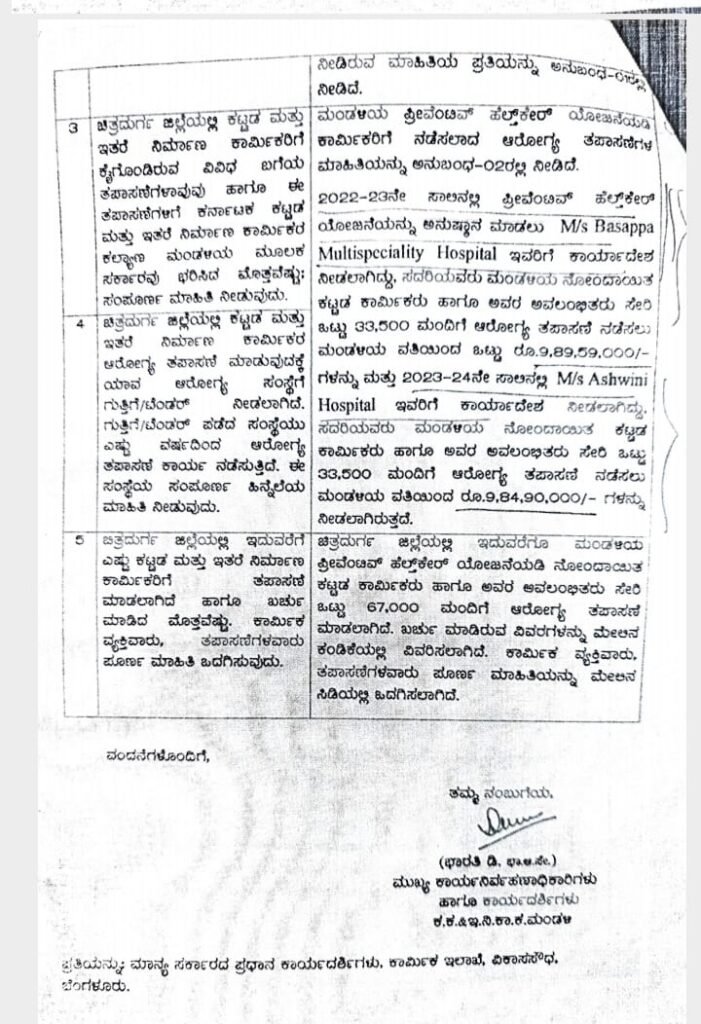 ನೀಡಿರುವ ಮಾಹಿತಿಯ ಪ್ರತಿಯನ್ನು ಅನುಬಂಧ-01ರಲ್ಲಿ
ನೀಡಿದೆ.
3
ಚಿತ್ರದುರ್ಗ ಜಿಲ್ಲೆಯಲ್ಲಿ ಕಟ್ಟಡ ಮತ್ತು
ಇತರೆ ನಿರ್ಮಾಣ ಕಾರ್ಮಿಕರಿಗೆ
ಕೈಗೊಂಡಿರುವ ವಿವಿಧ ಬಗೆಯ
ತಪಾಸಣೆಗಳಾವುವು ಹಾಗೂ ಈ
ತಪಾಸಣೆಗಳಿಗೆ ಕರ್ನಾಟಕ ಕಟ್ಟಡ
ಮತ್ತು ಇತರೆ ನಿರ್ಮಾಣ ಕಾರ್ಮಿಕರ
ಕಲ್ಯಾಣ ಮಂಡಳಿಯ ಮೂಲಕ
ಸರ್ಕಾರವು ಭರಿಸಿದ ಮೊತ್ತವೆಷ್ಟು;
ಸಂಪೂರ್ಣ ಮಾಹಿತಿ ನೀಡುವುದು.
4
ಚಿತ್ರದುರ್ಗ ಜಿಲ್ಲೆಯಲ್ಲಿ ಕಟ್ಟಡ ಮತ್ತು
ಇತರೆ ನಿರ್ಮಾಣ ಕಾರ್ಮಿಕರ
ಆರೋಗ್ಯ ತಪಾಸಣೆ ಮಾಡುವುದಕ್ಕೆ
ಯಾವ ಆರೋಗ್ಯ ಸಂಸ್ಥೆಗೆ
ಗುತ್ತಿಗೆ/ಟೆಂಡರ್ ನೀಡಲಾಗಿದೆ.
ಗುತ್ತಿಗೆ/ಟೆಂಡರ್ ಪಡೆದ ಸಂಸ್ಥೆಯು
ಎಷ್ಟು ವರ್ಷದಿಂದ ಆರೋಗ್ಯ
ತಪಾಸಣೆ ಕಾರ್ಯ ನಡೆಸುತ್ತಿದೆ. ಈ
ಸಂಸ್ಥೆಯ ಸಂಪೂರ್ಣ ಹಿನ್ನೆಲೆಯ
ಮಾಹಿತಿ ನೀಡುವುದು.
ಮಂಡಳಿಯ ಪ್ರೀವೆಂಟಿವ್ ಹೆಲ್ತ್‌ಕೇರ್ ಯೋಜನೆಯಡಿ
ಕಾರ್ಮಿಕರಿಗೆ ನಡೆಸಲಾದ ಆರೋಗ್ಯ ತಪಾಸಣೆಗಳ
ಮಾಹಿತಿಯನ್ನು ಅನುಬಂಧ-02ರಲ್ಲಿ ನೀಡಿದೆ.
2022-23ನೇ ಸಾಲಿನಲ್ಲಿ ಪ್ರೀವೆಂಟಿವ್ ಹೆಲ್ತ್‌ಕೇರ್
ಯೋಜನೆಯನ್ನು ಅನುಷ್ಠಾನ ಮಾಡಲು M/s Basappa
Multispeciality Hospital ಇವರಿಗೆ ಕಾರ್ಯಾದೇಶ
ನೀಡಲಾಗಿದ್ದು, ಸದರಿಯವರು ಮಂಡಳಿಯ ನೋಂದಾಯಿತ
ಕಟ್ಟಡ ಕಾರ್ಮಿಕರು ಹಾಗೂ ಅವರ ಅವಲಂಭಿತರು ಸೇರಿ
ಒಟ್ಟು 33,500 ಮಂದಿಗೆ ಆರೋಗ್ಯ ತಪಾಸಣೆ ನಡೆಸಲು
ಮಂಡಳಿಯ ವತಿಯಿಂದ ಒಟ್ಟು ರೂ.9,89,59,000/-
ಗಳನ್ನು ಮತ್ತು 2023-24ನೇ ಸಾಲಿನಲ್ಲಿ M/s Ashwini
Hospital ಇವರಿಗೆ ಕಾರ್ಯಾದೇಶ ನೀಡಲಾಗಿದ್ದು,
ಸದರಿಯವರು ಮಂಡಳಿಯ ನೋಂದಾಯಿತ ಕಟ್ಟಡ
ಕಾರ್ಮಿಕರು ಹಾಗೂ ಅವರ ಅವಲಂಭಿತರು ಸೇರಿ ಒಟ್ಟು
33,500 ಮಂದಿಗೆ ಆರೋಗ್ಯ ತಪಾಸಣೆ ನಡೆಸಲು
ಮಂಡಳಿಯ ವತಿಯಿಂದ ರೂ.9,84,90,000/- ಗಳನ್ನು
ನೀಡಲಾಗಿರುತ್ತದೆ.
5
ಚಿತ್ರದುರ್ಗ ಜಿಲ್ಲೆಯಲ್ಲಿ ಇದುವರೆಗೆ
ಎಷ್ಟು ಕಟ್ಟಡ ಮತ್ತು ಇತರೆ ನಿರ್ಮಾಣ
ಕಾರ್ಮಿಕರಿಗೆ ತಪಾಸಣೆ
ಮಾಡಲಾಗಿದೆ ಹಾಗೂ ಖರ್ಚು
ಮಾಡಿದ ಮೊತ್ತವೆಷ್ಟು. ಕಾರ್ಮಿಕ
ವ್ಯಕ್ತಿವಾರು, ತಪಾಸಣೆಗಳವಾರು
ಪೂರ್ಣ ಮಾಹಿತಿ ಒದಗಿಸುವುದು.
ಚಿತ್ರದುರ್ಗ ಜಿಲ್ಲೆಯಲ್ಲಿ ಇದುವರೆಗೂ ಮಂಡಳಿಯ
ಪ್ರೀವೆಂಟಿವ್ ಹೆಲ್ತ್‌ಕೇರ್ ಯೋಜನೆಯಡಿ ನೋಂದಾಯಿತ
ಕಟ್ಟಡ ಕಾರ್ಮಿಕರು ಹಾಗೂ ಅವರ ಅವಲಂಭಿತರು ಸೇರಿ
ಒಟ್ಟು 67,000 ಮಂದಿಗೆ ಆರೋಗ್ಯ ತಪಾಸಣೆ
ಮಾಡಲಾಗಿದೆ. ಖರ್ಚು ಮಾಡಿರುವ ವಿವರಗಳನ್ನು ಮೇಲಿನ
ಕಂಡಿಕೆಯಲ್ಲಿ ವಿವರಿಸಲಾಗಿದೆ. ಕಾರ್ಮಿಕ ವ್ಯಕ್ತಿವಾರು,
ತಪಾಸಣೆಗಳವಾರು ಪೂರ್ಣ ಮಾಹಿತಿಯನ್ನು ಮೇಲಿನ
ಸಿಡಿಯಲ್ಲಿ ಒದಗಿಸಲಾಗಿದೆ.
ವಂದನೆಗಳೊಂದಿಗೆ,
ತಮ್ಮ ನಂಬುಗೆಯ,
(ಭಾರತಿ ಡಿ. ಭಾ.ಆ.ಸೇ.)
ಮುಖ್ಯ ಕಾರ್ಯನಿರ್ವಹಣಾಧಿಕಾರಿಗಳು
ಹಾಗೂ ಕಾರ್ಯದರ್ಶಿಗಳು
ಕ.ಕ.&ಇ.ನಿ.ಕಾ.ಕ.ಮಂಡಳಿ
ಪ್ರತಿಯನ್ನು: ಮಾನ್ಯ ಸರ್ಕಾರದ ಪ್ರಧಾನ ಕಾರ್ಯದರ್ಶಿಗಳು, ಕಾರ್ಮಿಕ ಇಲಾಖೆ, ವಿಕಾಸಸೌಧ,
ಬೆಂಗಳೂರು.